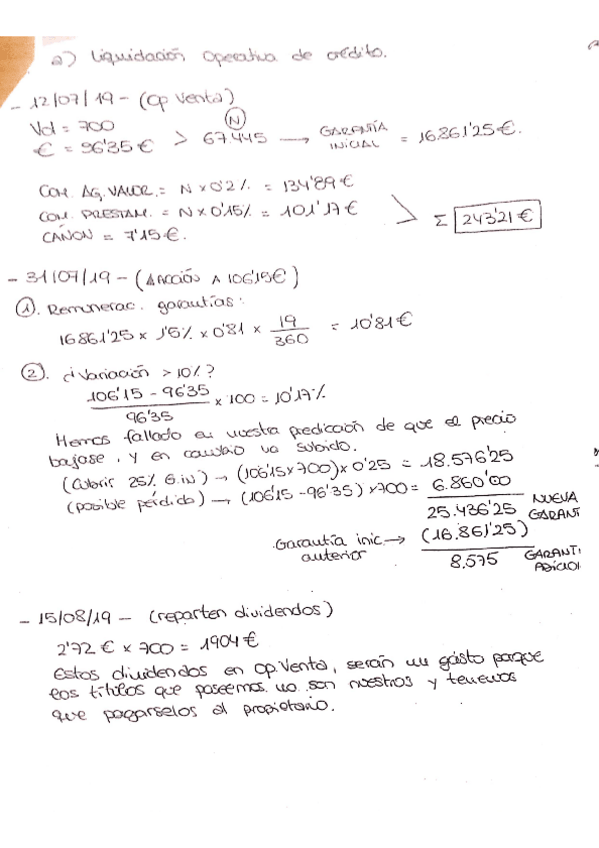 a) Liquidación Operativa de crédito.
- 12/07/19 - (Op Venta)
Vol = 700
€ = 96'35€ > 67.445 (N) → GARANTÍA INICIAL = 16.861'25€.
COM. AG. VALOR. = N x 0'2% = 134'89€
COM. PRESTAM. = N x 0'15% = 101'17€
CAÑON = 7'15€.
Σ 243'21€
- 31/07/19 - (Acción A 106'15€)
①. Remunerac. garantías:
16861'25 x 1'5% x 0'81 x 19/360 = 10'81€
②. ¿Variación > 10%?
106'15 - 96'35 / 96'35 x 100 = 10'17%
Hemos fallado en nuestra predicción de que el precio
bajase, y en cambio ha subido.
(Cubrir 25% G.in) → (106'15x700)x 0'25 = 18.576'25
(posible pérdida) → (106'15 - 96'35) x 700 = 6.860'00
25.436'25 NUEVA GARANT
Garantía inic. anterior → (16.861'25)
8.575 GARANTI ADICIO
- 15/08/19 - (reparten dividendos)
2'72 € x 700 = 1904€
Estos dividendos en op. Venta, serán un gasto porque
los títulos que poseemos no son nuestros y tenemos
que pagárselos al propietario.